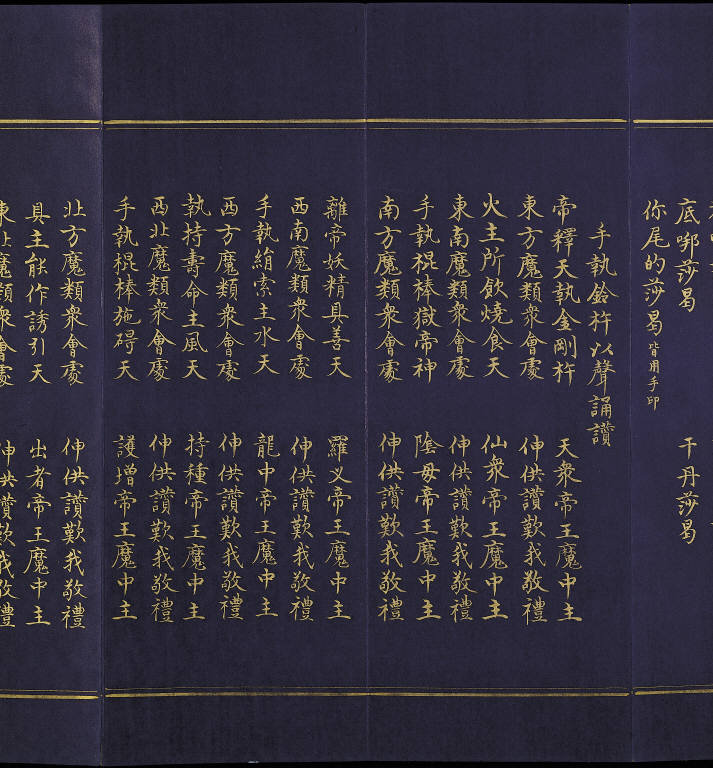 底哪莎曷　干丹莎曷
你尾的莎曷皆用手印
手執鈴杵以聲誦讚
帝釋天執金剛杵　天衆帝王魔中主
東方魔類衆會處　伸供讚歎我敬禮
火主所飲燒食天　仙衆帝王魔中主
東南魔類衆會處　伸供讚歎我敬禮
手執棍棒獄帝神　陰毋帝王魔中主
南方魔類衆會處　伸供讚歎我敬禮
離帝妖精具善天　羅义帝王魔中主
西南魔類衆會處　伸供讚歎我敬禮
手執絹索主水天　龍中帝王魔中主
西方魔類衆會處　伸供讚歎我敬禮
執持壽命主風天　持種帝王魔中主
西北魔類衆會處　伸供讚歎我敬禮
手執棍棒施碍天　護增帝王魔中主
北方魔類衆會處　伸供讚歎我敬禮
具主能作誘引天　出者帝王魔中主
東北魔類衆會處　伸供讚歎我敬禮